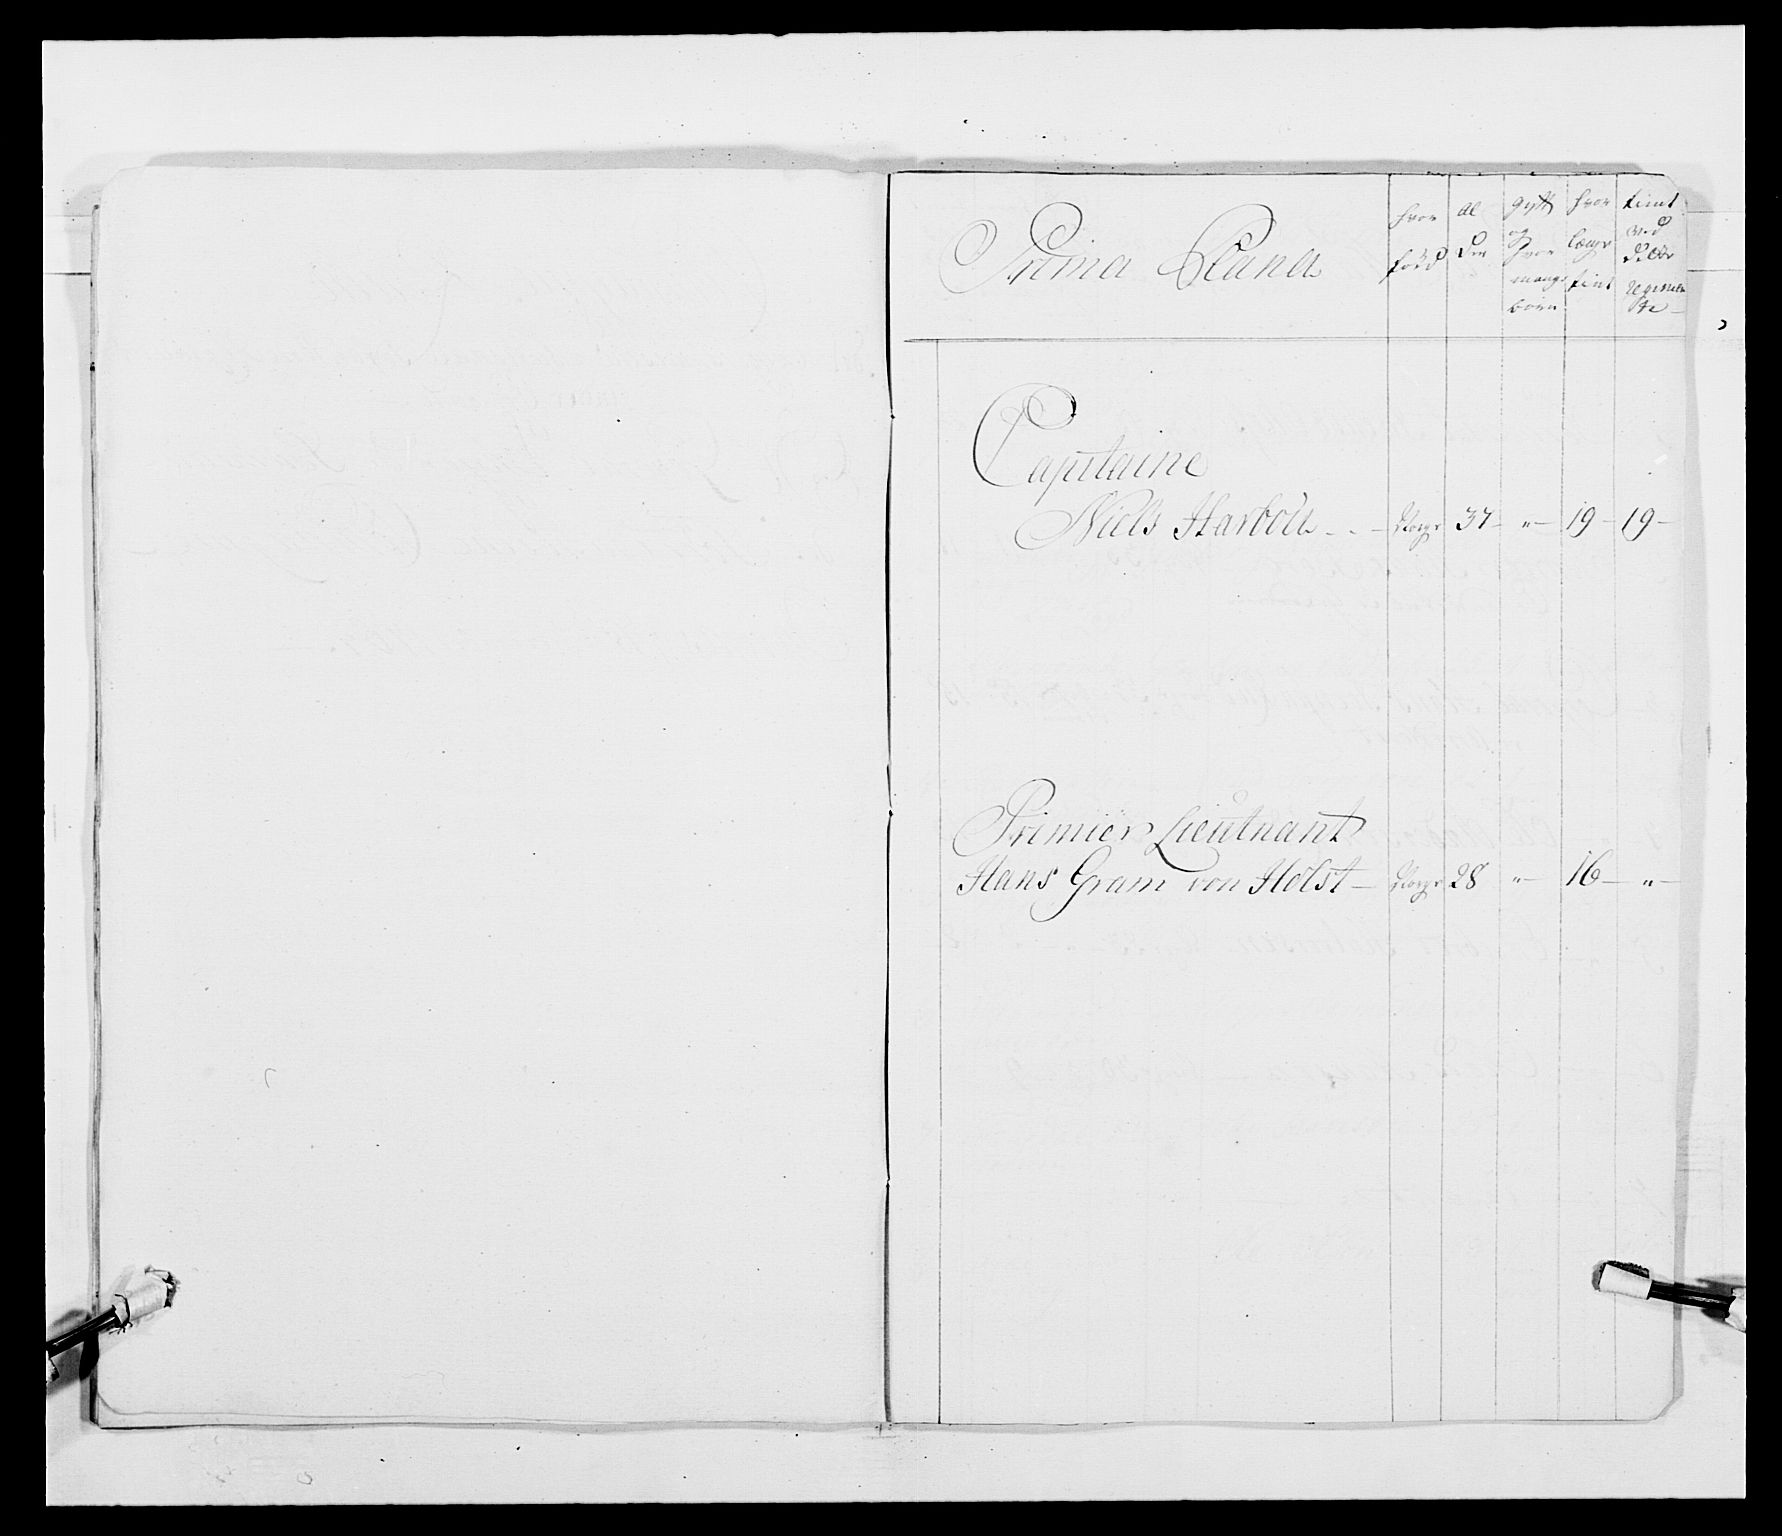 Prima Plana
hvor
född
al
der
gift
og
hvor
mange
börn
hvor
længe
tient
tient
ved
Regimen
te
Capitaine
Niels Harboü - - - Norge 37 - " - 19 - 19 -
Primier Lieutnant
Hans Gram von Holst - Norge 28 " - 16 - " -